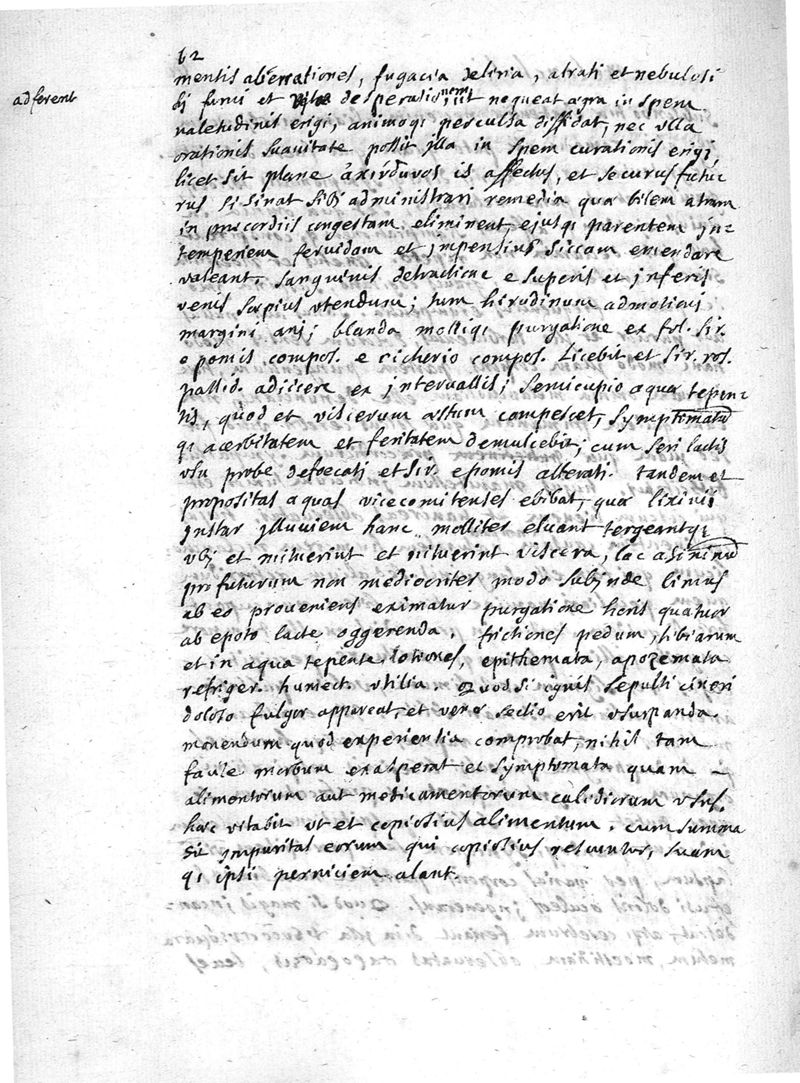 62
mentis aberrationes, fugacia deliria, atrati et nebulosi
adferent
bj fumi et desperationem, ut nequeat ægra in spem
valetudinis erigi, animoqi perculsa diffidat, nec vlla
orationis suauitate possit jlla in spem curationis erigi
licet sit plane ἀκίνδυνος is affectus, et securus futu
rus si sinat sibj administrari remedia quæ bilem atram
in præcordiis congestam eliminent, ejusqi parentem jn=
temperiem feruidam et jmpensius siccam emendare
valeant. sanguinis detractione e superis et jnferis
venis sæpius vtendum; tum hirudinum admotionj
margini anj; blanda molliqi purgatione ex fol. sir.
e pomis compos. e cichorio compos. Licebit et sir. ros.
pallid. adijcere ex jnteruallis; semicupio aquæ tepen=
tis, quod et viscerum æstum compescet, symptomatū
qi acerbitatem et feritatem demulcebit; cum seri lactis
vsu probe defoecati et sir. e pomis alterati. tandem et
propositas aquas vicecomitenses ebibat, quæ lixiuij
jnstar jlluuiem hanc molliter eluant tergeantqi
vbj et mituerint et nituerint viscera, lac asininū
profuturum non mediocriter modo subjnde limus
ab eo proueniens eximatur purgatione horis quatuor
ab epoto lacte oggerenda. frictiones pedum, tibiarum
et in aqua tepente lotiones, epithemata, apozemata
refriger. humect. vtilia. Quod si ignis sepulti cineri
doloso fulgor appareat, et venæ sectio erit vsurpanda.
monendum quod experientia comprobat, nihil tam
facile morbum exasperat et symptomata quam
alimentorum aut medicamentorum calidiorum vsus.
hæc vitabit vt et copiosius alimentum. cum summa
sit jmpuritas eorum qui copiosius vescuntur, suam
qi ipsi perniciem alant.